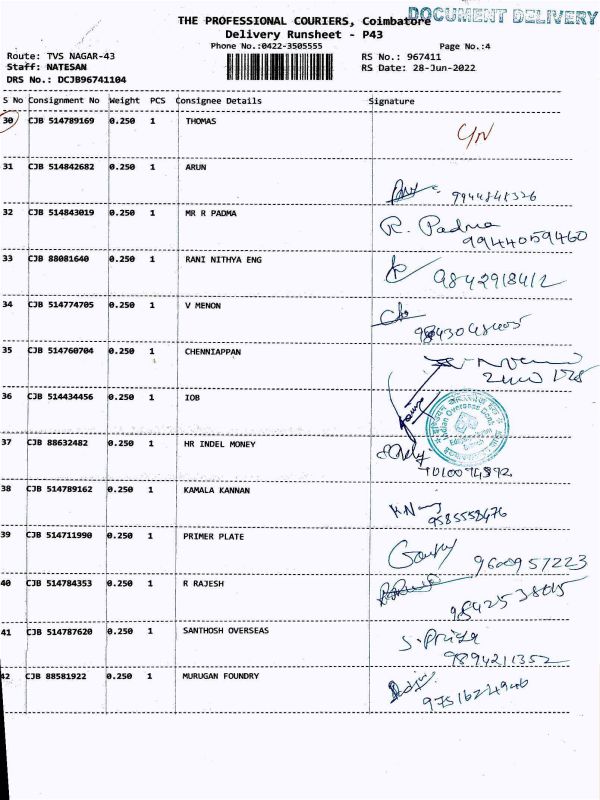 THE PROFESSIONAL COURIERS, Coimbatore
DOCUMENT DELIVERY
Delivery Runsheet - P43
Phone No.:0422-3505555 Page No.:4
Route: TVS NAGAR-43 RS No.: 967411
Staff: NATESAN RS Date: 28-Jun-2022
DRS No.: DCJB96741104
S No Consignment No Weight PCS Consignee Details Signature
30 CJB 514789169 0.250 1 THOMAS
31 CJB 514842682 0.250 1 ARUN
9944848326
32 CJB 514843019 0.250 1 MR R PADMA R. Padma
9944059460
33 CJB 88081640 0.250 1 RANI NITHYA ENG 9842918412
34 CJB 514774705 0.250 1 V MENON
35 CJB 514760704 0.250 1 CHENNIAPPAN
36 CJB 514434456 0.250 1 IOB
Indian Overseas Bank
37 CJB 88632482 0.250 1 HR INDEL MONEY
38 CJB 514789162 0.250 1 KAMALA KANNAN
9585558476
39 CJB 514711990 0.250 1 PRIMER PLATE
9600957223
40 CJB 514784353 0.250 1 R RAJESH
41 CJB 514787620 0.250 1 SANTHOSH OVERSEAS S. Priya
9894211352
42 CJB 88581922 0.250 1 MURUGAN FOUNDRY